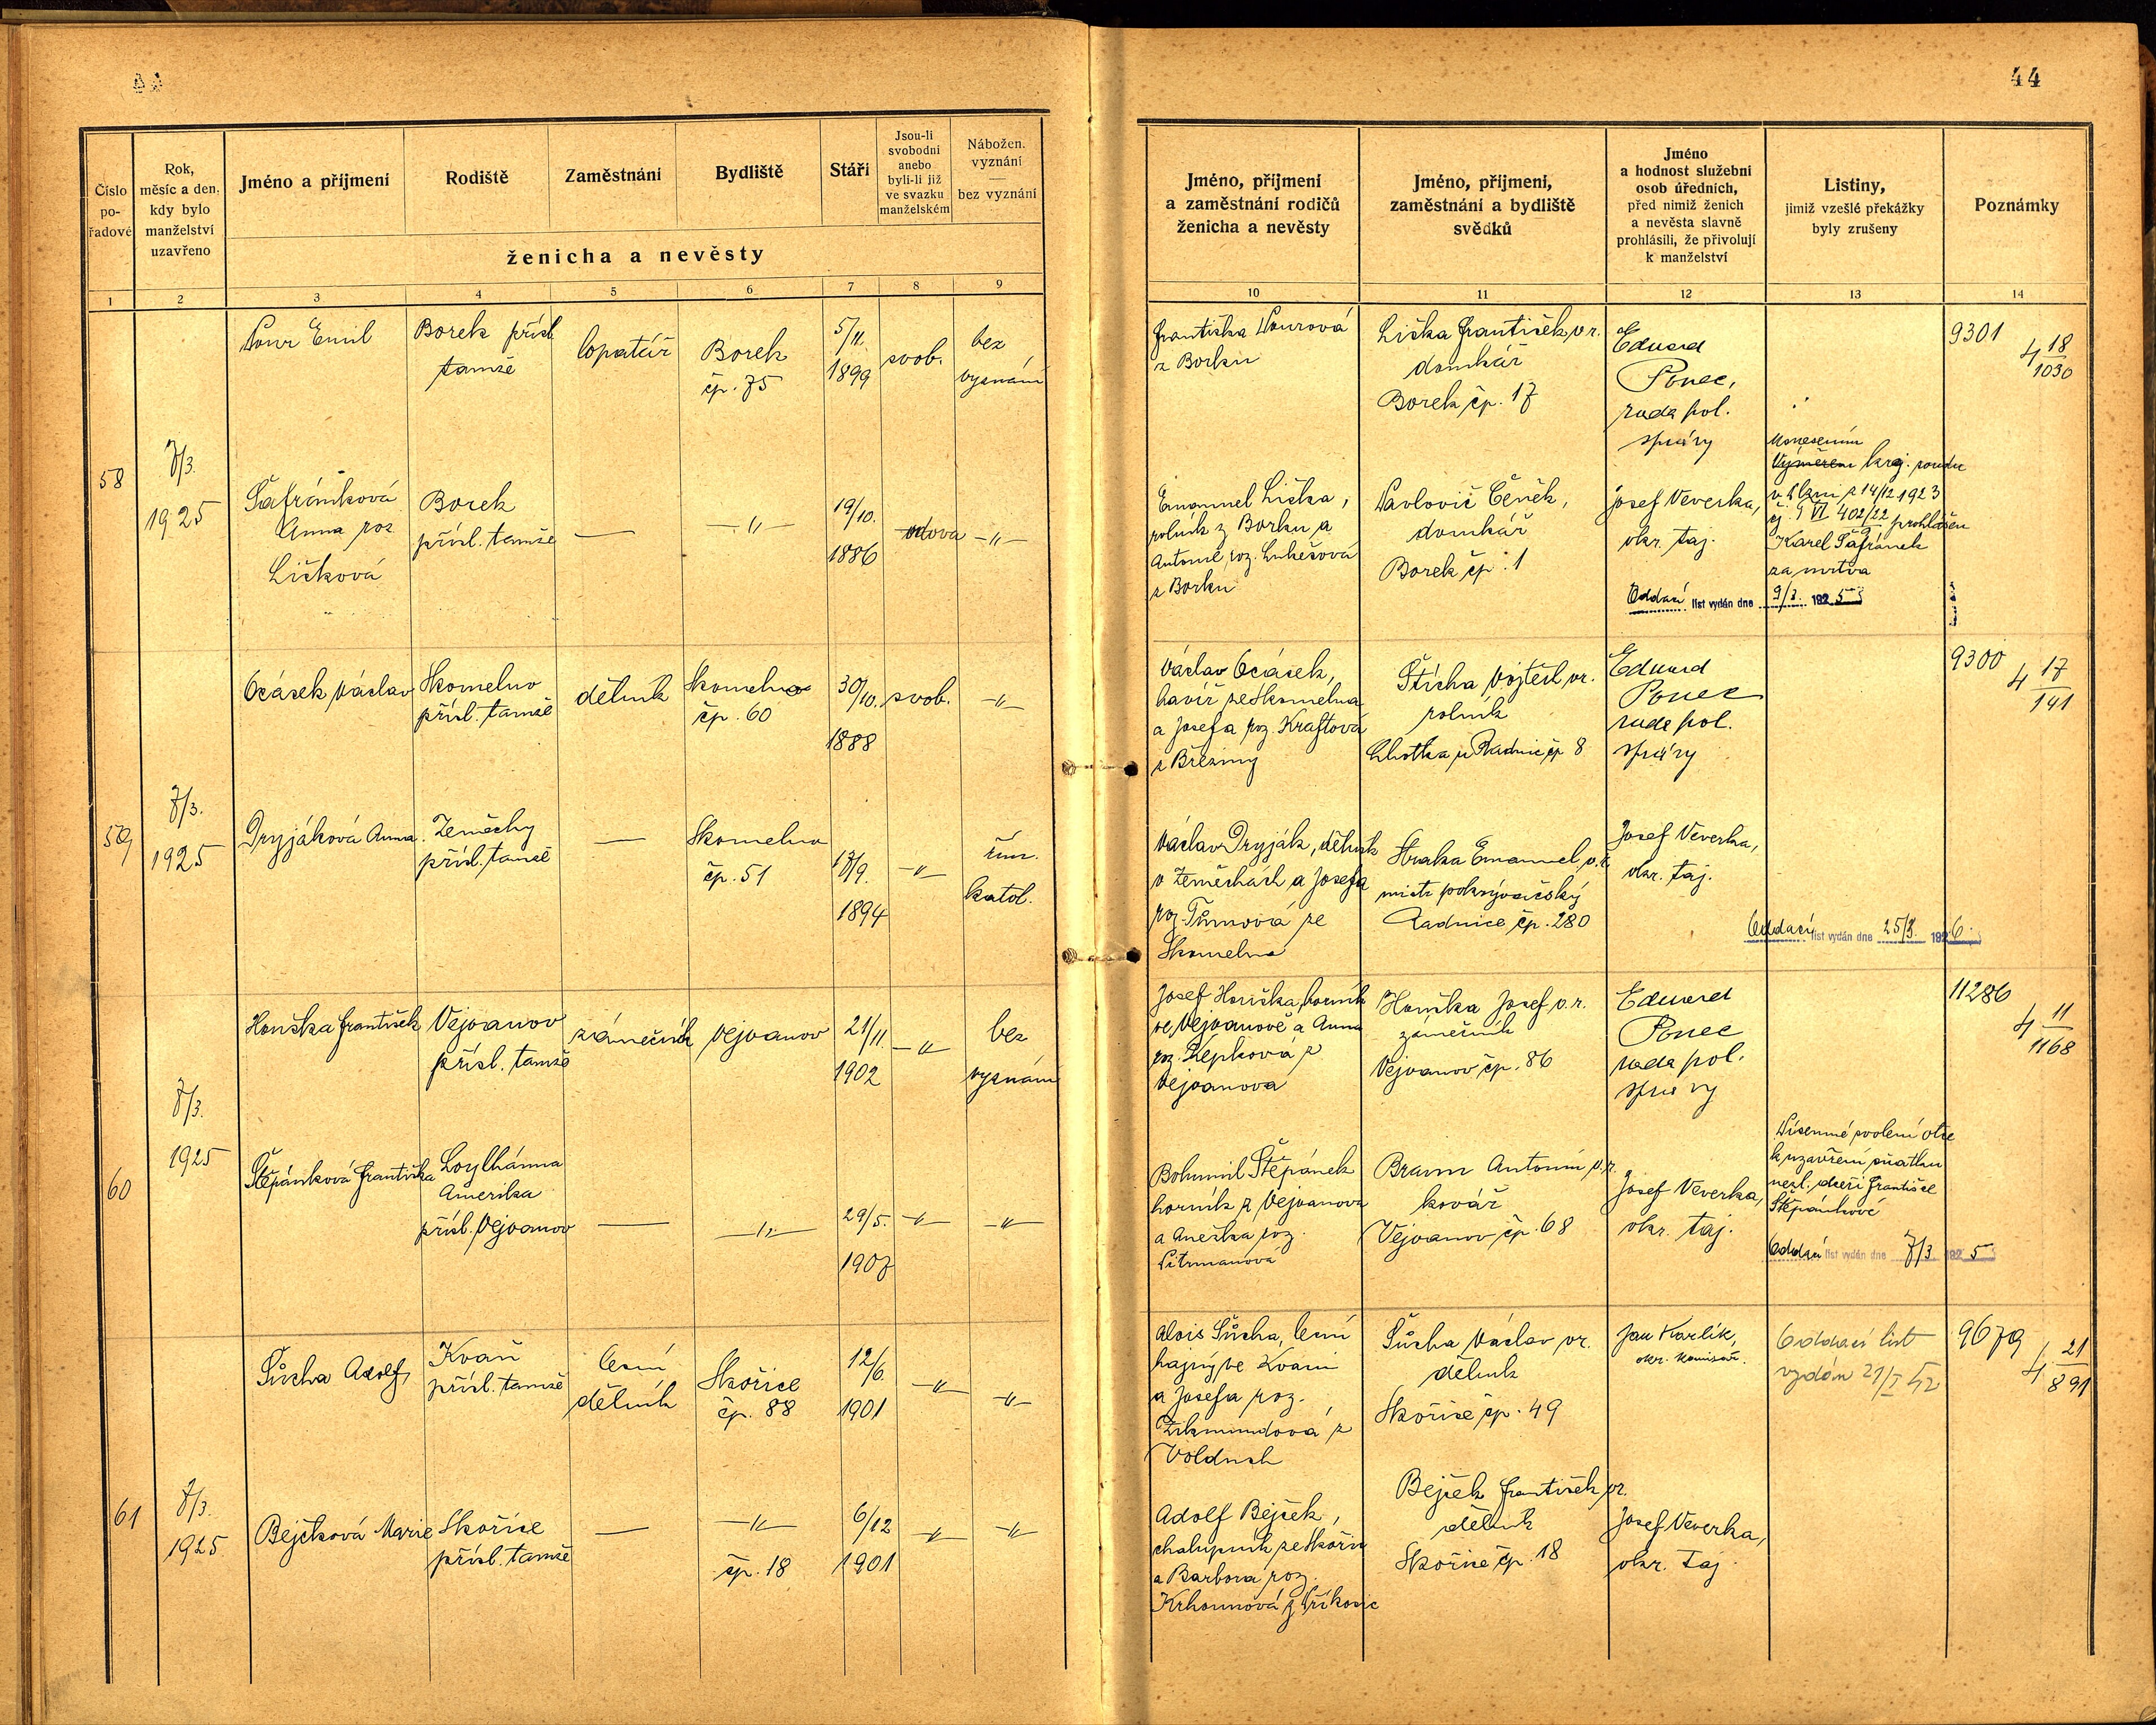 44
Číslo
po-
řadové
Rok,
měsíc a den,
kdy bylo
manželství
uzavřeno
Jméno a příjmení
Rodiště
Zaměstnání
Bydliště
Stáří
Jsou-li
svobodni
anebo
byli-li již
ve svazku
manželském
Nábožen.
vyznání
bez vyznání
ženicha a nevěsty
Jméno, příjmení
a zaměstnání rodičů
ženicha a nevěsty
Jméno, příjmení,
zaměstnání a bydliště
svědků
Jméno
a hodnost služební
osob úředních,
před nimiž ženich
a nevěsta slavně
prohlásili, že přivolují
k manželství
Listiny,
jimiž vzešlé překážky
byly zrušeny
Poznámky
1 2 3 4 5 6 7 8 9 10 11 12 13 14
58
7/3.
1925
Emil
Borek přísl.
tamže
lopatář
Borek
čp. 75
5/11.
1899
svob.
bez
vyznání
Františka
z Borku
Liška František, vr.
domkář
Borek čp. 17
Eduard
Ponec,
rada pol.
správy
9301
4 18
1030
Šafránková
Anna roz.
Lišková
Borek
přísl. tamže
—
—"—
19/10.
1886
vdova
—"—
Emanuel Liška,
rolník z Borku a
Antonie, roz. Lukešová
z Borku
Pavlovič Čeněk,
domkář
Borek čp. 1
Josef Veverka,
okr. taj.
Usnesením
Výměrem kraj. soudu
v Plzni z 14/12 1923
čj. VI 402/22 prohlášen
Karel Šafránek
za mrtva
Oddací list vydán dne 9/3. 1925
59
7/3.
1925
Ocásek Václav
Skomelno
přísl. tamže
dělník
Skomelno
čp. 60
30/10.
1888
svob.
—"—
Václav Ocásek,
havíř ze Skomelna
a Josefa roz. Kraftová
z Březiny
Štícha Vojtěch vr.
rolník
Lhotka u Radnic čp 8
Eduard
Ponec
rada pol.
správy
9300
4 17
141
Dryjáková Anna
Zeměchy
přísl. tamže
—
Skomelno
čp. 51
17/9.
1894
—"—
řím.
katol.
Václav Dryják, dělník
v Zeměchách a Josefa
roz. Tůmová ze
Skomelna
Straka Emanuel, v.r.
mistr pokrývačský
Radnice čp. 280
Josef Veverka,
okr. taj.
Oddací list vydán dne 25/3. 1926.
60
7/3.
1925
Houška František
Vejvanov
přísl. tamže
zámečník
Vejvanov
21/11.
1902
—"—
bez
vyznání
Josef Houška, horník
ve Vejvanově a Anna
roz. Řepková z
Vejvanova
Houška Josef v.r.
zámečník
Vejvanov čp. 86
Eduard
Ponec
rada pol.
správy
11286
4 11
1168
Štěpánková Františka
Amerika
přísl. Vejvanov
—
—"—
29/5.
1907
—"—
—"—
Bohumil Štěpánek
horník z Vejvanova
a Anežka roz.
Braum Antonín v.r.
kovář
Vejvanov čp. 68
Josef Veverka,
okr. taj.
Písemné svolení otce
k uzavření sňatku
nezl. dceři Františce
Štěpánkové
Oddací list vydán dne 7/3 1925
61
7/3.
1925
Šůcha Adolf,
Kvaň
přísl. tamže
lesní
dělník
Skořice
čp. 88
12/6.
1901
—"—
—"—
Alois Šůcha, lesní
hajný ve Kvani
a Josefa roz.
Zikmundová z
Volduch
Šůcha Václav vr.
dělník
Skořice čp. 49
Jan Karlík,
okr. komisař.
Oddací list
vydán 21/I 42
9679
4 21
891
Bejčková Marie
Skořice
přísl. tamže
—
—"—
čp. 18
6/12
1901
—"—
—"—
Adolf Bejček,
chalupník ze Skořic
a Barbora roz.
Bejček František vr.
dělník
Skořice čp. 18
Josef Veverka,
okr. taj.